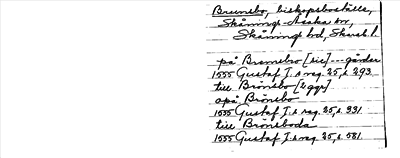 Brunsbo, biskopsboställe,
Skånings-Asaka sn,
Skånings hd, Skarab. l.
på Bromsbro [sic] --- gården
1555 Gustaf I:s reg. 25, s 293
till Brönsbo [2 ggr]
opå Brönsbo
1555 Gustaf I:s reg. 25, s. 331
till Brönsboda
1555 Gustaf I:s reg. 25, s. 581